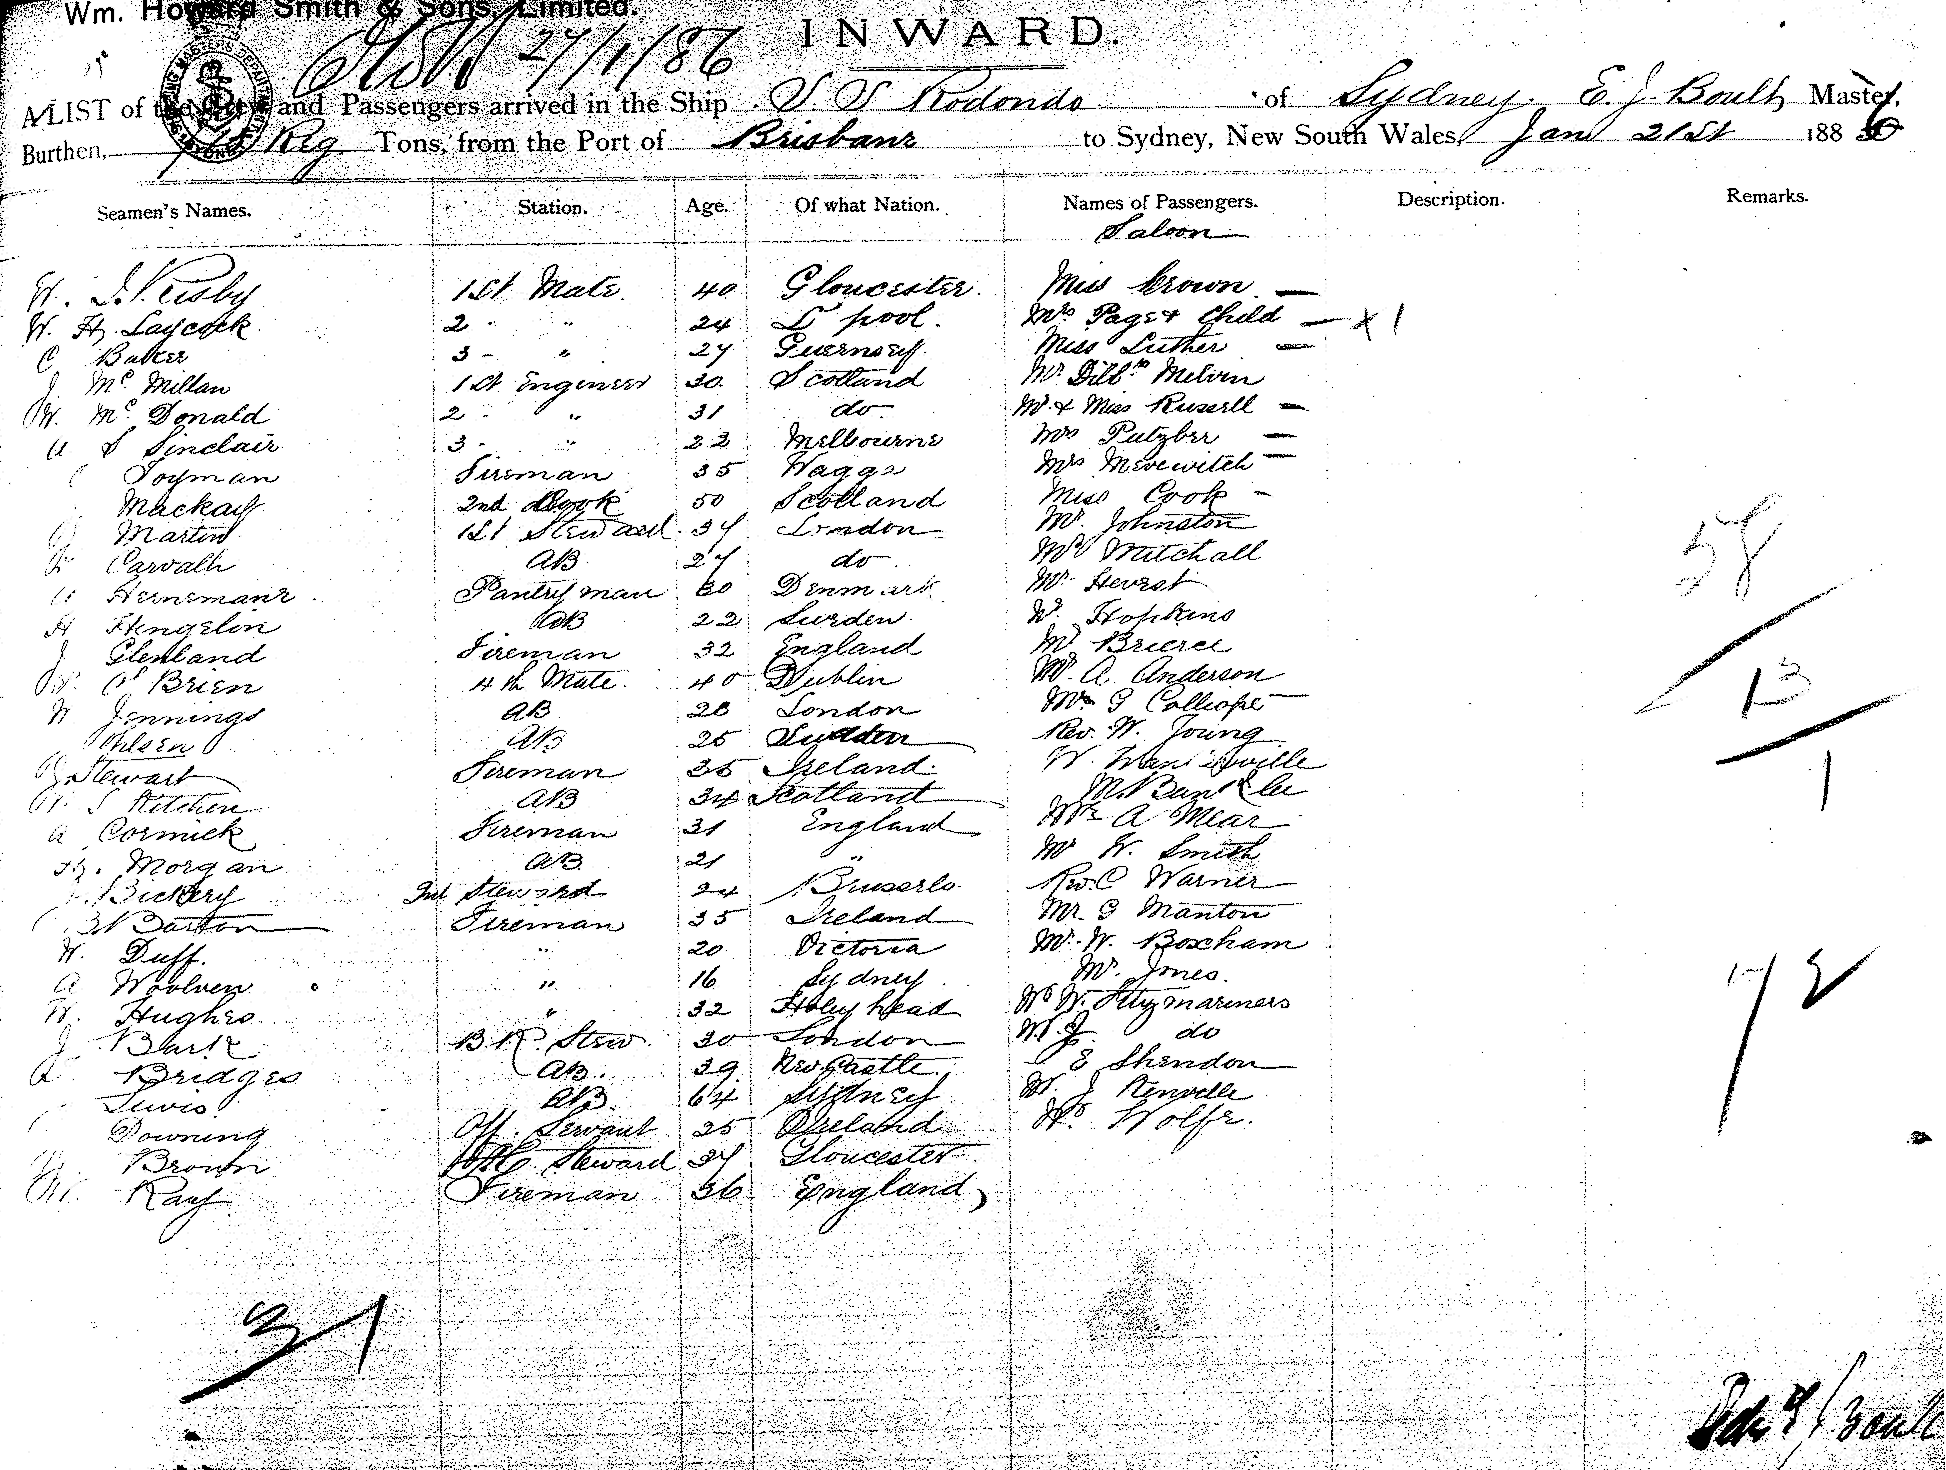 Wm. Howard Smith & Sons, Limited.
INWARD.
27/1/86
A LIST of the Crew and Passengers arrived in the Ship S. S Rodondo of Sydney, E. J. Boult Master,
Burthen, Reg Tons, from the Port of Brisbane to Sydney, New South Wales, Jan 21st 1886
Seamen's Names. Station. Age. Of what Nation. Names of Passengers. Description. Remarks.
Saloon
1st Mate 40 Gloucester Miss Crown —
W. H. Laycock 2 " " 24 L'pool. Mrs Page & Child — x 1
C Baker 3 - " 27 Guernsey Miss Luther —
J McMillan 1st Engineer 30 Scotland Mr Melvin
W. McDonald 2 " " 31 do Mr & Miss Russell —
A S Sinclair 3 - " 22 Melbourne Mrs Putzber —
Toyman Fireman 35 Wagga Mrs —
Mackay 2nd Cook 50 Scotland Miss Cook -
Martin 1st Steward 37 London Mr. Johnston
Carvath AB 27 do Mr Mitchall
Pantryman 30 Denmark Mr. Hevrst
H AB 22 Sweden Hopkins
J Glenland Fireman 32 England Mr
O'Brien 4th Mate. 40 Dublin Mr. A. Anderson
W Jennings AB 28 London G Calliope
Ohlsen AB 25 Sweden Rev. W. Young
Stewart Fireman 35 Ireland. W.
Kitchen AB 34 Scotland
A Cormick Fireman 31 England A Mear
Morgan AB 21 " Mr W. Smith
Bickery 2nd Steward 24 Brussels Rev. C Warner
Barton Fireman 35 Ireland Mr. G Manton
W. Duff. " 20 Victoria Mr. W. Boxham
A Woolven " 16 Sydney Mr. Jones.
W. Hughes " 32 Holyhead W. Fitzmariners
J Bark B.R. Stew. 30 London do
Bridges AB. 39 Newcastle E Shendon
Lewis AB. 64 Sydney J
Downing Off. Servant 25 Ireland Wolfe.
Brown Steward 37 Gloucester
Ray Fireman 36 England,
58
13
1
72
31